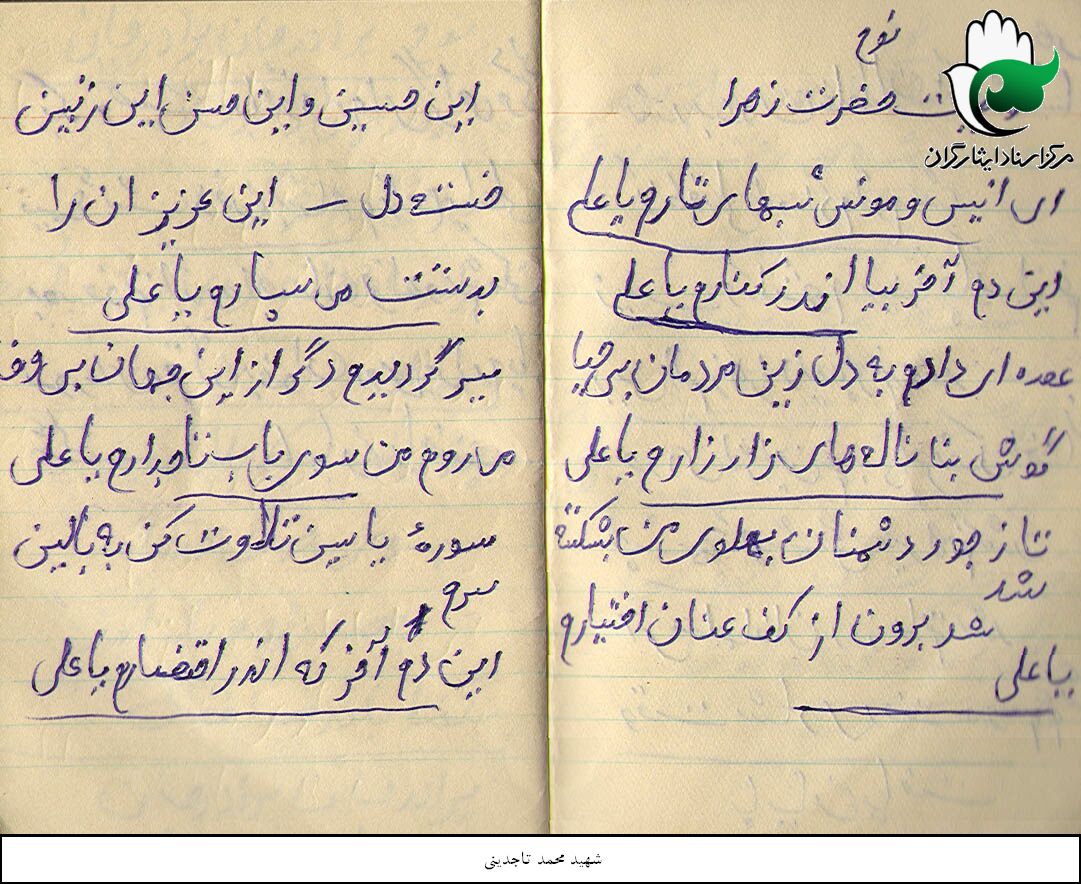 نوح
وصیت حضرت زهرا
ای انیس و مونس شبهای تارم یا علی
این دم آخر بیا اندر کنارم یا علی
عقده ای دارم به دل زین مردمان بی حیا
گوش بنا ناله های زار زارم یا علی
تا ز جور دشمنان پهلوی من بشکسته
شد
شد برون از کف عنان اختیارم
یا علی
این حسین و این حسن این زینب
خسته دل – این عزیزان را
بدستت می سپارم یا علی
سیر گردیدم دگر از این جهان بی وفا
می روم من سوی باب تاجدارم یا علی
سورهٔ یاسین تلاوت کن به بالین
سرم
این دم آخر که اندر احتضارم یا علی
مرکز اسناد ایثارگران
شهید محمد تاجدینی